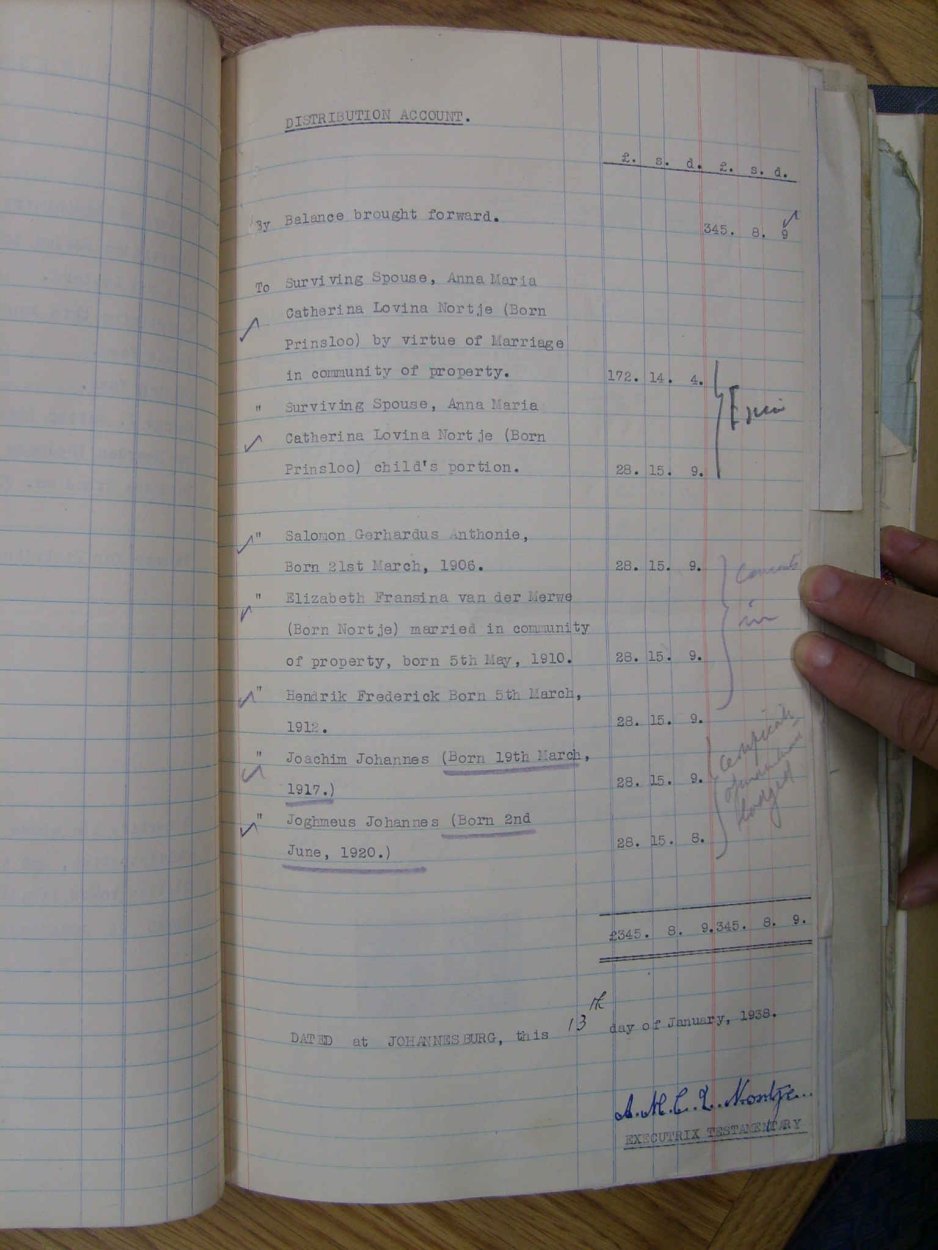 DISTRIBUTION ACCOUNT.
£. s. d. £. s. d.
By Balance brought forward. 345. 8. 9
To Surviving Spouse, Anna Maria
Catherina Lovina Nortje (Born
Prinsloo) by virtue of Marriage
in community of property. 172. 14. 4.
" Surviving Spouse, Anna Maria
Catherina Lovina Nortje (Born
Prinsloo) child's portion. 28. 15. 9.
" Salomon Gerhardus Anthonie,
Born 21st March, 1906. 28. 15. 9.
" Elizabeth Fransina van der Merwe
(Born Nortje) married in community
of property, born 5th May, 1910. 28. 15. 9.
" Hendrik Frederick Born 5th March,
1912. 28. 15. 9.
" Joachim Johannes (Born 19th March,
1917.) 28. 15. 9.
" Joghmeus Johannes (Born 2nd
June, 1920.) 28. 15. 8.
in
lodged
£345. 8. 9. 345. 8. 9.
DATED at JOHANNESBURG, this 13th day of January, 1938.
A. M. C. L. Nortje
EXECUTRIX TESTAMENTARY